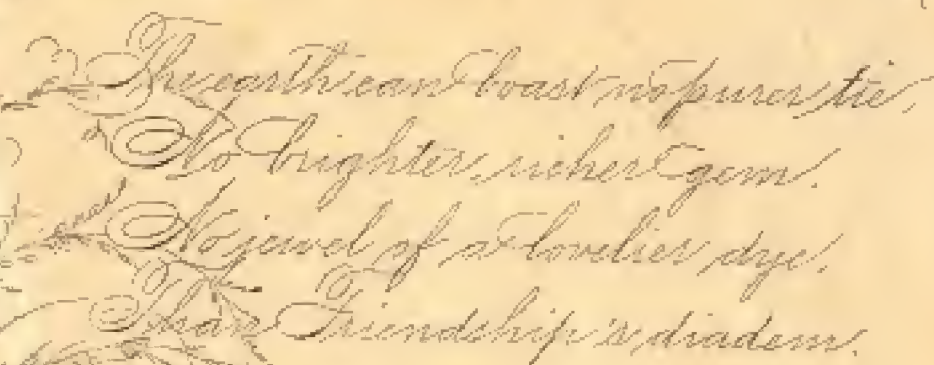 The earth can boast no purer tie,
No brighter, richer gem.
No jewel of a lovelier dye.
Than Friendship's diadem.